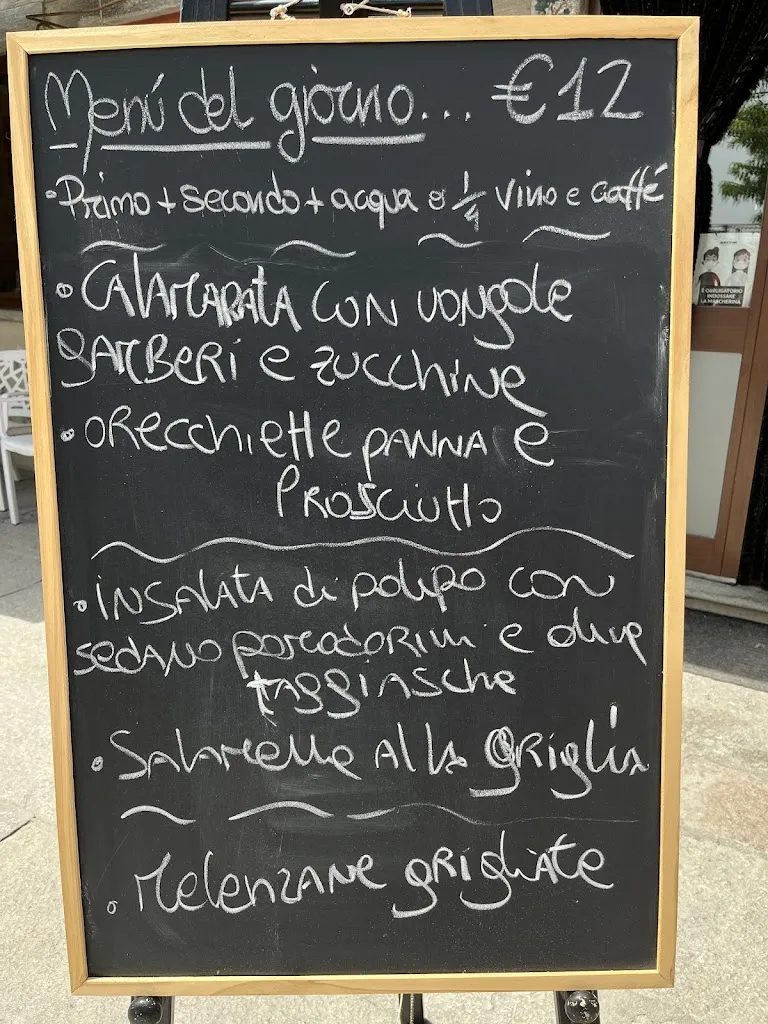 Menú del giorno... €12
• Primo + secondo + acqua o 1/4 vino e caffé
• CALAMARATA CON VONGOLE
GAMBERI e zucchine
• ORecchiette PANNA e
PROSCIUTTO
• iNSALATA di polipo con
sedANO pomodorini e olive
tAGGIASche
• SALAMelle Alla GRiGliA
• MeleNzANe gRigliAte
È OBBLIGATORIO
INDOSSARE
LA MASCHERINA